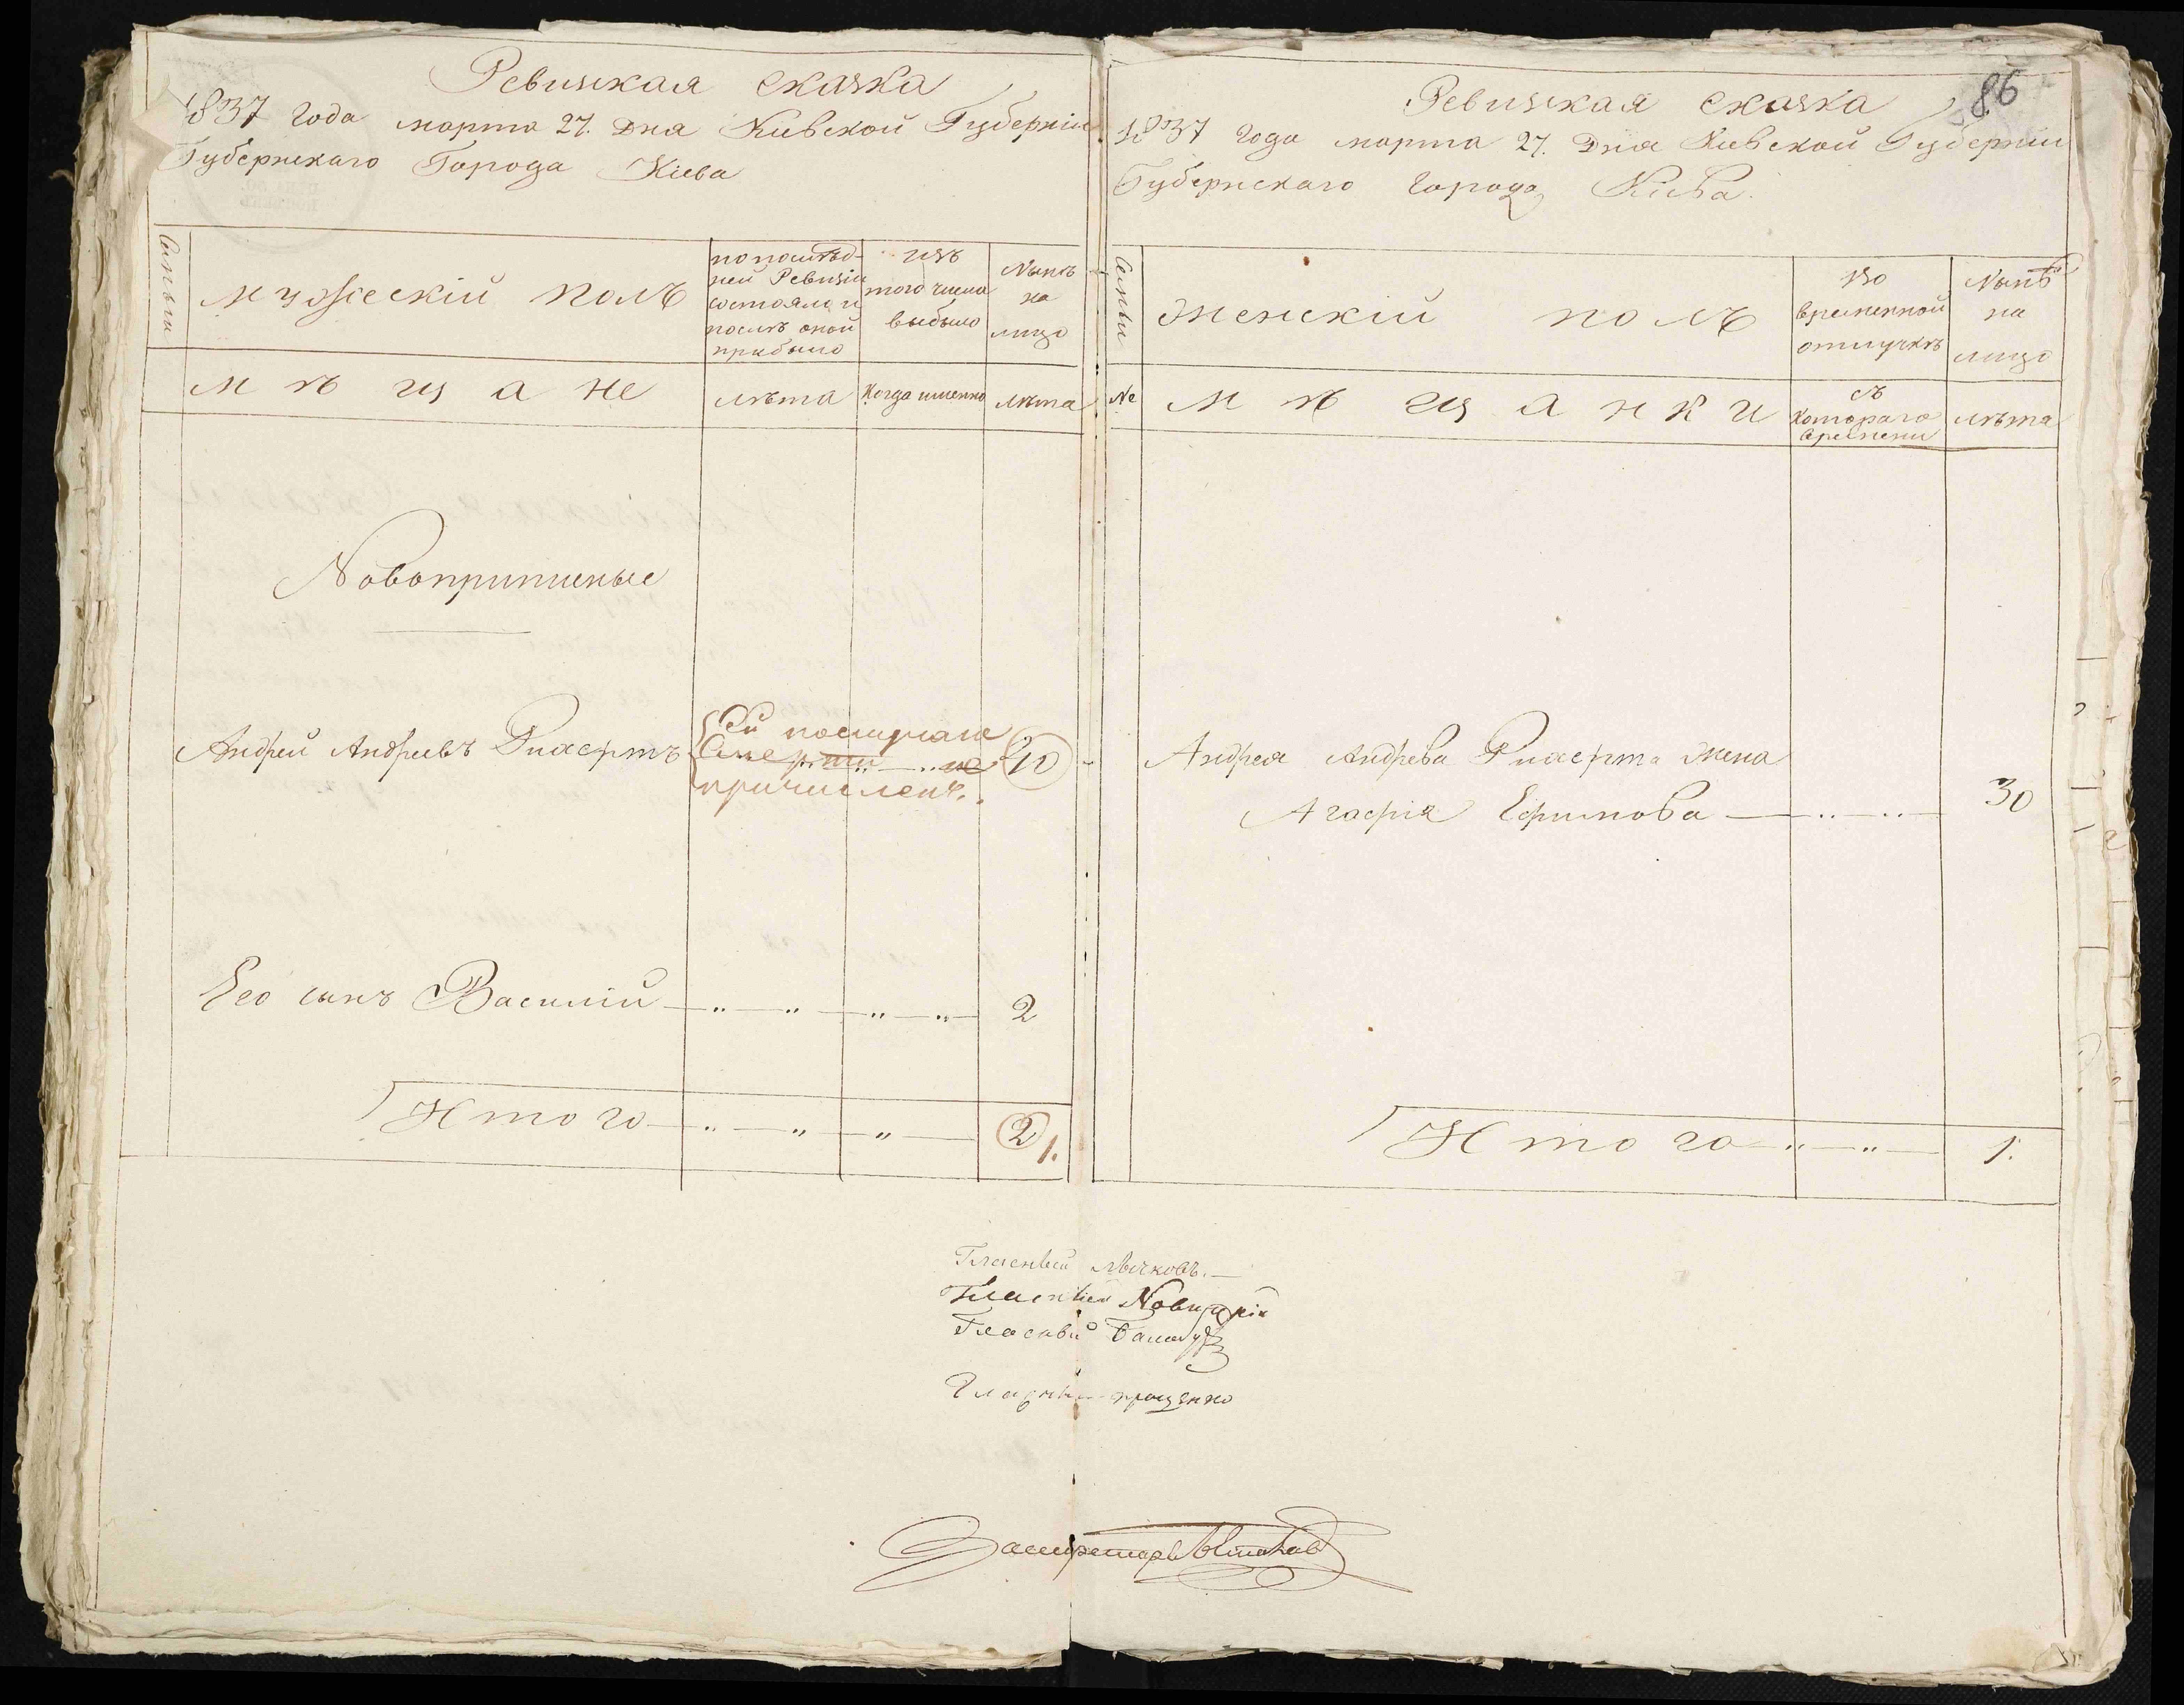 Ревизская сказка
1837 года марта 27. дня Кіевской Губерніи
Губернскаго Города Кіева
Семьи
мужескій полъ
по послѣд-
ней Ревизіи
состояло и
послѣ оной
прибыло
изъ
того числа
выбыло
Нынѣ
на
лицо
мѣщане
лѣта
Когда именно
лѣта
Новоприписные
Андрей Андреевъ
Сей
Смерти не
причисленъ.
Его сынъ Василій 2
Итого 2 1.
86
Ревизская сказка
1837 года марта 27. дня Кіевской Губерніи
Губернскаго города Кіева.
Семьи
женскій полъ
Во
временной
отлучкѣ
Нынѣ
на
лицо
№
мѣщанки
съ
котораго
времени
лѣта
Андрея Андрева жена
Агафія Ефимова 30
Итого 1.
Гласный Лычковъ.
Гласный
Гласный
Гласный Проценко